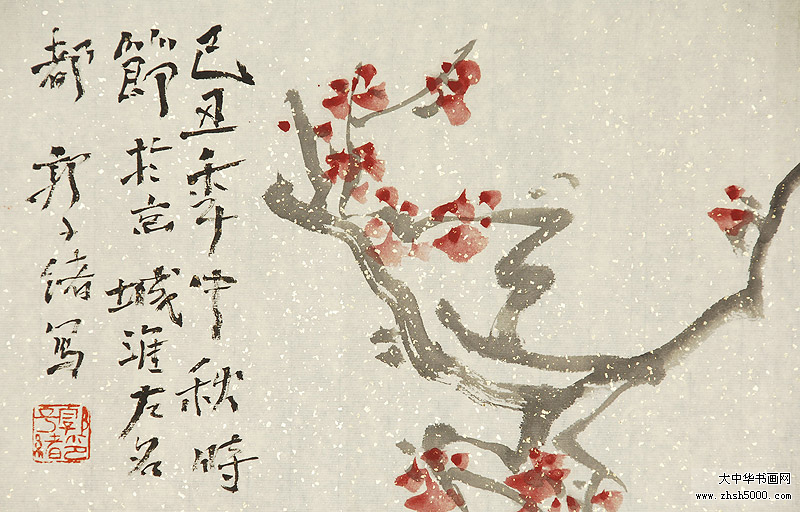 己丑年中秋時
節於京城淮左名
都 郭子緒写
郭印子緒
大中华书画网
www.zhsh5000.com